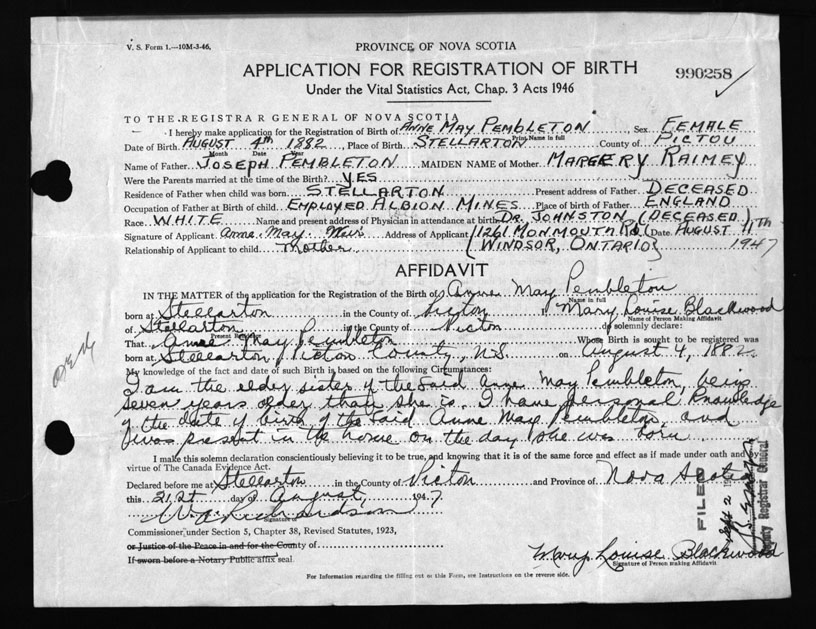 V. S. Form 1.—10M-3-46.
PROVINCE OF NOVA SCOTIA
APPLICATION FOR REGISTRATION OF BIRTH
990258
Under the Vital Statistics Act, Chap. 3 Acts 1946
TO THE REGISTRAR GENERAL OF NOVA SCOTIA
I hereby make application for the Registration of Birth of ANNE MAY PEMBLETON, Sex FEMALE
Print Name in full
Date of Birth AUGUST 4th 1882, Place of Birth STELLARTON County of PICTOU
Month Date Year
Name of Father JOSEPH PEMBLETON MAIDEN NAME of Mother MARGERY RAIMEY
Were the Parents married at the time of the Birth? YES
Residence of Father when child was born STELLARTON Present address of Father DECEASED
Occupation of Father at Birth of child EMPLOYED ALBION MINES Place of birth of Father ENGLAND
Race WHITE Name and present address of Physician in attendance at birth DR. JOHNSTON (DECEASED)
Signature of Applicant Anne May Weir Address of Applicant (1261 MONMOUTH RD. Date AUGUST 11th
Relationship of Applicant to child (WINDSOR, ONTARIO) 1947
AFFIDAVIT
IN THE MATTER of the application for the Registration of the Birth of Anne May Pembleton
Name in full
born at Stellarton in the County of Pictou I Mary Louise Blackwood
Name of Person Making Affidavit
of Stellarton in the County of Pictou do solemnly declare:
Present Residence
That Anne May Pembleton Whose Birth is sought to be registered was
born at Stellarton, Pictou County, N.S. on August 4, 1882
My knowledge of the fact and date of such Birth is based on the following Circumstances:
I am the older sister of the said Anne May Pembleton, being
seven years older than she is. I have personal knowledge
of the date of birth of the said Anne May Pembleton, and
I was present in the home on the day she was born.
I make this solemn declaration conscientiously believing it to be true, and knowing that it is of the same force and effect as if made under oath and
virtue of The Canada Evidence Act.
Declared before me at Stellarton in the County of Pictou and Province of Nova Scotia
this 21st day of August, 1947
Signature of
Commissioner under Section 5, Chapter 38, Revised Statutes, 1923,
or Justice of the Peace in and for the County of
If sworn before a Notary Public affix seal.
Mary Louise Blackwood
Signature of Person Making Affidavit
For Information regarding the filling out of this Form, see Instructions on the reverse side.
FILED
Deputy Registrar General